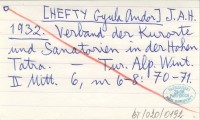 [HEFTY Gyula Andor] J.A.H.
1932. Verband der Kurorte
und Sanatorien in der Hohen
Tatra. — Tur. Alp. Wint.
II Mitt. 6, nr 6-8: 70-71.